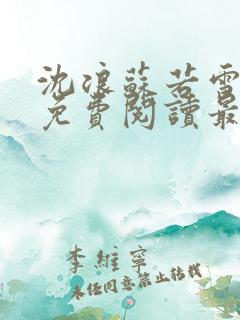 沈浪蘇若雪
免費閱讀最
李維寧
未經同意禁止轉載